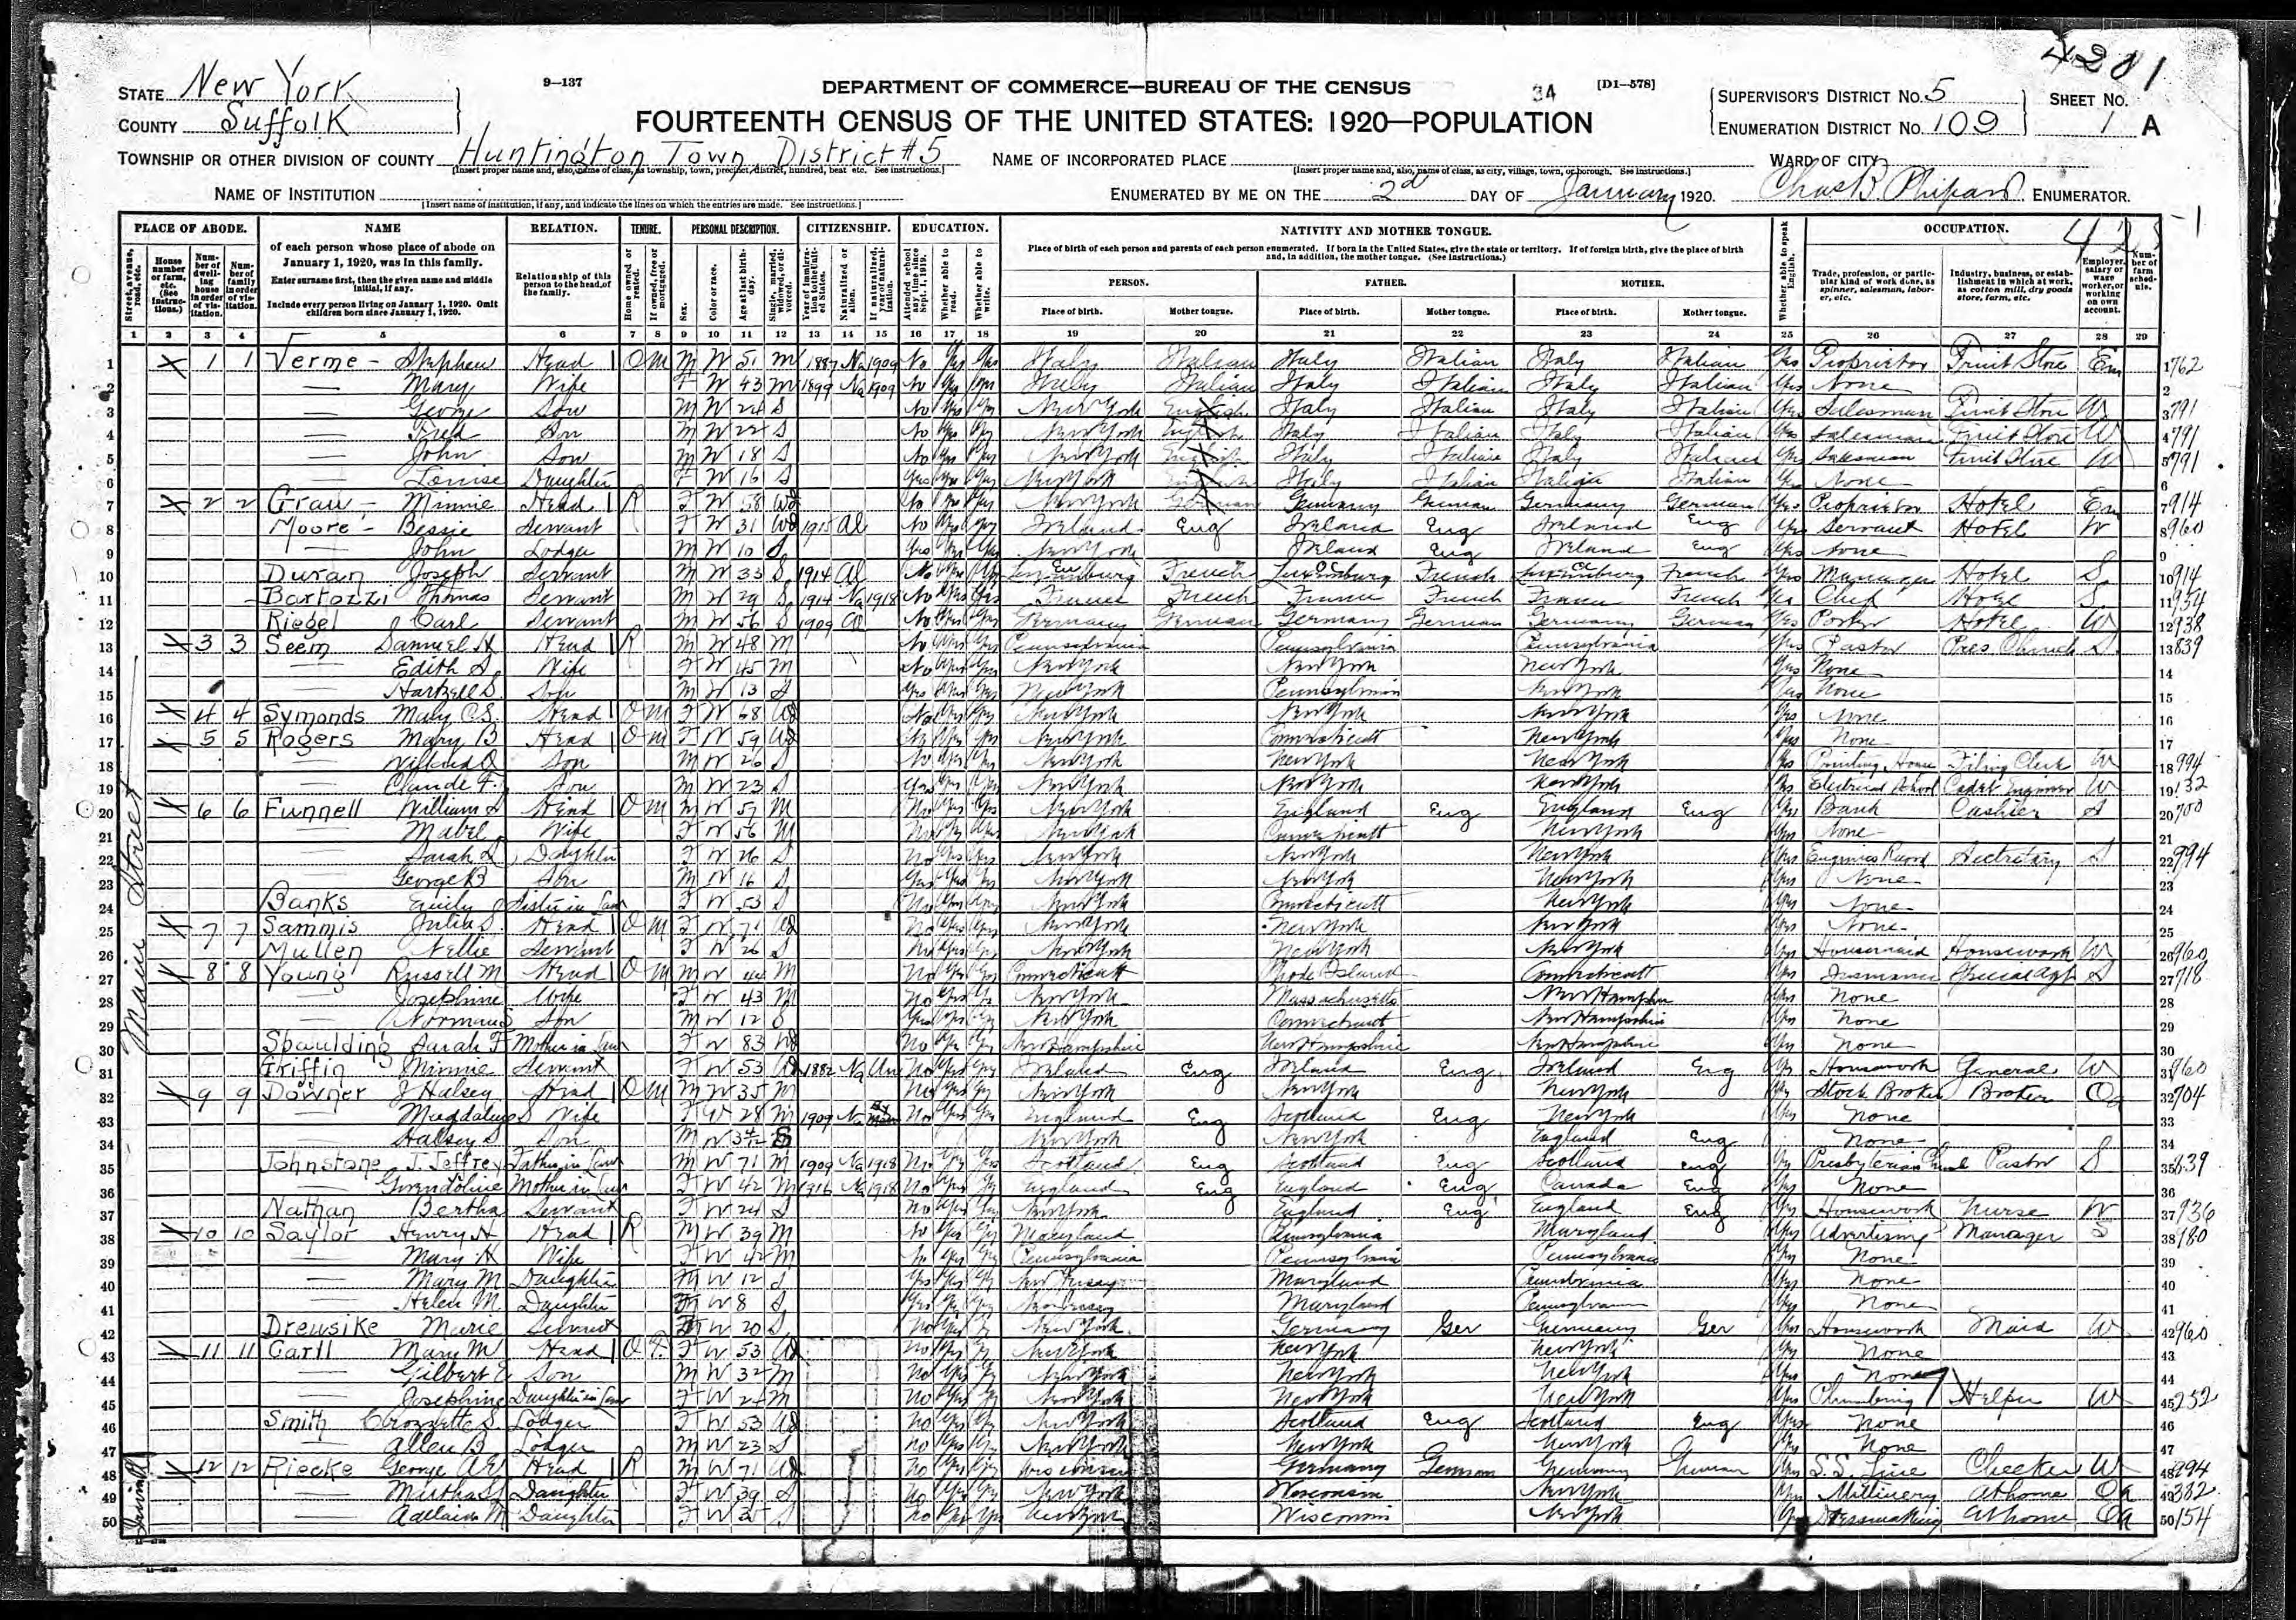 4201
STATE New York
9—137
DEPARTMENT OF COMMERCE—BUREAU OF THE CENSUS
34
[D1—578]
SUPERVISOR'S DISTRICT No. 5
SHEET No.
COUNTY Suffolk
FOURTEENTH CENSUS OF THE UNITED STATES: 1920—POPULATION
ENUMERATION DISTRICT No. 109
1 A
TOWNSHIP OR OTHER DIVISION OF COUNTY Huntington Town District #5
NAME OF INCORPORATED PLACE
WARD OF CITY
[Insert proper name and, also, name of class, as township, town, precinct, district, hundred, beat etc. See instructions.]
[Insert proper name and, also, name of class, as city, village, town, or borough. See instructions.]
NAME OF INSTITUTION
ENUMERATED BY ME ON THE 2d DAY OF January 1920. Chas. B. ENUMERATOR.
[Insert name of institution, if any, and indicate the lines on which the entries are made. See instructions.]
PLACE OF ABODE. NAME RELATION. TENURE. PERSONAL DESCRIPTION. CITIZENSHIP. EDUCATION. NATIVITY AND MOTHER TONGUE. OCCUPATION.
of each person whose place of abode on January 1, 1920, was in this family.
Enter surname first, then the given name and middle initial, if any.
Include every person living on January 1, 1920. Omit children born since January 1, 1920.
Relationship of this person to the head of the family.
Place of birth of each person and parents of each person enumerated. If born in the United States, give the state or territory. If of foreign birth, give the place of birth and, in addition, the mother tongue. (See instructions.)
PERSON. FATHER. MOTHER.
Place of birth. Mother tongue. Place of birth. Mother tongue. Place of birth. Mother tongue.
Trade, profession, or particular kind of work done, as spinner, salesman, laborer, etc.
Industry, business, or establishment in which at work, as cotton mill, dry goods store, farm, etc.
Employer, salary or wage worker, or working on own account.
Number of farm schedule.
1 2 3 4 5 6 7 8 9 10 11 12 13 14 15 16 17 18 19 20 21 22 23 24 25 26 27 28 29
Main Street
1 X 1 1 Verme - Stephen Head O M M W 51 M 1887 Na 1909 No Yes Yes Italy Italian Italy Italian Italy Italian Yes Proprietor Fruit Store Em 1 762
2 Mary Wife F W 43 M 1899 Na 1909 No Yes Yes Italy Italian Italy Italian Italy Italian Yes None 2
3 George Son M W 24 S No Yes Yes New York English Italy Italian Italy Italian Yes Salesman Fruit Store W 3 791
4 Fred Son M W 22 S No Yes Yes New York English Italy Italian Italy Italian Yes Salesman Fruit Store W 4 791
5 John Son M W 18 S No Yes Yes New York English Italy Italian Italy Italian Yes Salesman Fruit Store W 5 791
6 Louise Daughter F W 16 S Yes Yes Yes New York Italy Italian Italian Yes None 6
7 X 2 2 Grau - Minnie Head R F W 58 Wd No Yes Yes New York German Germany German Germany German Yes Proprietor Hotel Em 7 914
8 Moore - Bessie Servant F W 31 Wd 1915 Al No Yes Yes Ireland Eng Ireland Eng Ireland Eng Yes Servant Hotel W 8 960
9 John Lodger M W 10 S Yes Yes Yes New York Ireland Eng Ireland Eng Yes None 9
10 Duran Joseph Servant M W 33 S 1914 Al No Yes Yes Luxemburg French Luxemburg French Luxemburg French Yes Manager Hotel S 10 914
11 Bartozzi Thomas Servant M W 29 S 1914 Na 1918 No Yes Yes France French France French France French Yes Chef Hotel S 11 954
12 Riegel Carl Servant M W 56 S 1909 Al No Yes Yes Germany German Germany German Germany German Yes Porter Hotel W 12 938
13 X 3 3 Seem Samuel H Head R M W 48 M No Yes Yes Pennsylvania Pennsylvania Pennsylvania Yes Pastor Pres. Church S 13 839
14 Edith S. Wife F W 45 M No Yes Yes New York New York New York Yes None 14
15 Hartzell S. Son M W 13 S Yes Yes Yes New York Pennsylvania New York Yes None 15
16 X 4 4 Symonds Mary C.S. Head O M F W 68 Wd No Yes Yes New York New York New York Yes None 16
17 X 5 5 Rogers Mary B Head O M F W 59 Wd Yes Yes New York Connecticutt New York Yes None 17
18 Son M W 26 S No Yes Yes New York New York New York Yes Printing House Filing Clerk W 18 994
19 Claude F. Son M W 23 S Yes Yes Yes New York New York New York Yes Electrical School Cadet Engineer W 19 132
20 X 6 6 Funnell William S Head O M M W 57 M No Yes Yes New York England Eng England Eng Yes Bank Cashier S 20 700
21 Mabel Wife F W 56 M No Yes Yes New York Connecticutt New York Yes None 21
22 Sarah S. Daughter F W 26 S No Yes Yes New York New York New York Yes Engineers Record Secretary S 22 994
23 George B Son M W 16 S Yes Yes Yes New York New York New York Yes None 23
24 Banks Emily Sister in Law F W 53 S No Yes Yes New York Connecticutt New York Yes None 24
25 X 7 7 Sammis Julia S. Head O M F W 71 Wd No Yes Yes New York New York New York Yes None 25
26 Mullen Nellie Servant F W 26 S No Yes Yes New York New York New York Yes Housemaid Housework W 26 960
27 X 8 8 Young Russell M Head O M M W 44 M No Yes Yes Connecticutt Rhode Island Connecticutt Yes Insurance General Agt S 27 718
28 Josephine Wife F W 43 M No Yes Yes New York Massachusetts New Hampshire Yes None 28
29 Norman S Son M W 12 S Yes Yes Yes New York Connecticut New Hampshire Yes None 29
30 Spaulding Sarah F Mother in Law F W 83 Wd No Yes Yes New Hampshire New Hampshire New Hampshire Yes None 30
31 Griffin Minnie Servant F W 53 Wd 1882 Na Un No Yes Yes Ireland Eng Ireland Eng Ireland Eng Yes Housework General W 31 960
32 X 9 9 Downer J Halsey Head O M M W 35 M No Yes Yes New York New York New York Yes Stock Broker Broker Oa 32 704
33 Magdalene S Wife F W 28 M 1909 Na No Yes Yes England Eng Scotland Eng New York Yes None 33
34 Halsey S Son M W 3 4/12 S New York New York England Eng None 34
35 Johnstone J. Jeffrey Father in Law M W 71 M 1909 Na 1918 No Yes Yes Scotland Eng Scotland Eng Scotland Eng Yes Presbyterian Pastor S 35 839
36 Gwendoline Mother in Law F W 42 M 1916 Na 1918 No Yes Yes England Eng England Eng Canada Eng Yes None 36
37 Nathan Bertha Servant F W 24 S No Yes Yes New York England Eng England Eng Yes Housework Nurse W 37 936
38 X 10 10 Saylor Henry H Head R M W 39 M No Yes Yes Maryland Pennsylvania Maryland Yes Advertising Manager S 38 980
39 Mary H Wife F W 42 M No Yes Yes Pennsylvania Pennsylvania Pennsylvania Yes None 39
40 Mary M Daughter F W 12 S Yes Yes Yes New Jersey Maryland Pennsylvania Yes None 40
41 Helen M. Daughter F W 8 S Yes Yes Yes New Jersey Maryland Pennsylvania Yes None 41
42 Drewsike Marie Servant F W 20 S No Yes Yes New York Germany Ger Germany Ger Yes Housework Maid W 42 960
43 X 11 11 Carll Mary M Head O F F W 53 Wd No Yes Yes New York New York New York Yes None 43
44 Gilbert C Son M W 32 M No Yes Yes New York New York New York Yes None 44
45 Josephine Daughter in Law F W 24 M No Yes Yes New York New York New York Yes Plumbing Helper W 45 252
46 Smith Crozzette S. Lodger F W 53 Wd No Yes Yes New York Scotland Eng Scotland Eng Yes None 46
47 Allen B Lodger M W 23 S No Yes Yes New York New York New York Yes None 47
48 X 12 12 Riecke George A Head R M W 71 Wd No Yes Yes Wisconsin Germany German Germany German Yes S.S. Line Checker W 48 294
49 Daughter F W 39 S No Yes Yes New York Wisconsin New York Yes Millinery At home Oa 49 382
50 Adelaide M Daughter F W S No Yes Yes New York Wisconsin New York Yes Dressmaking At home Oa 50 154